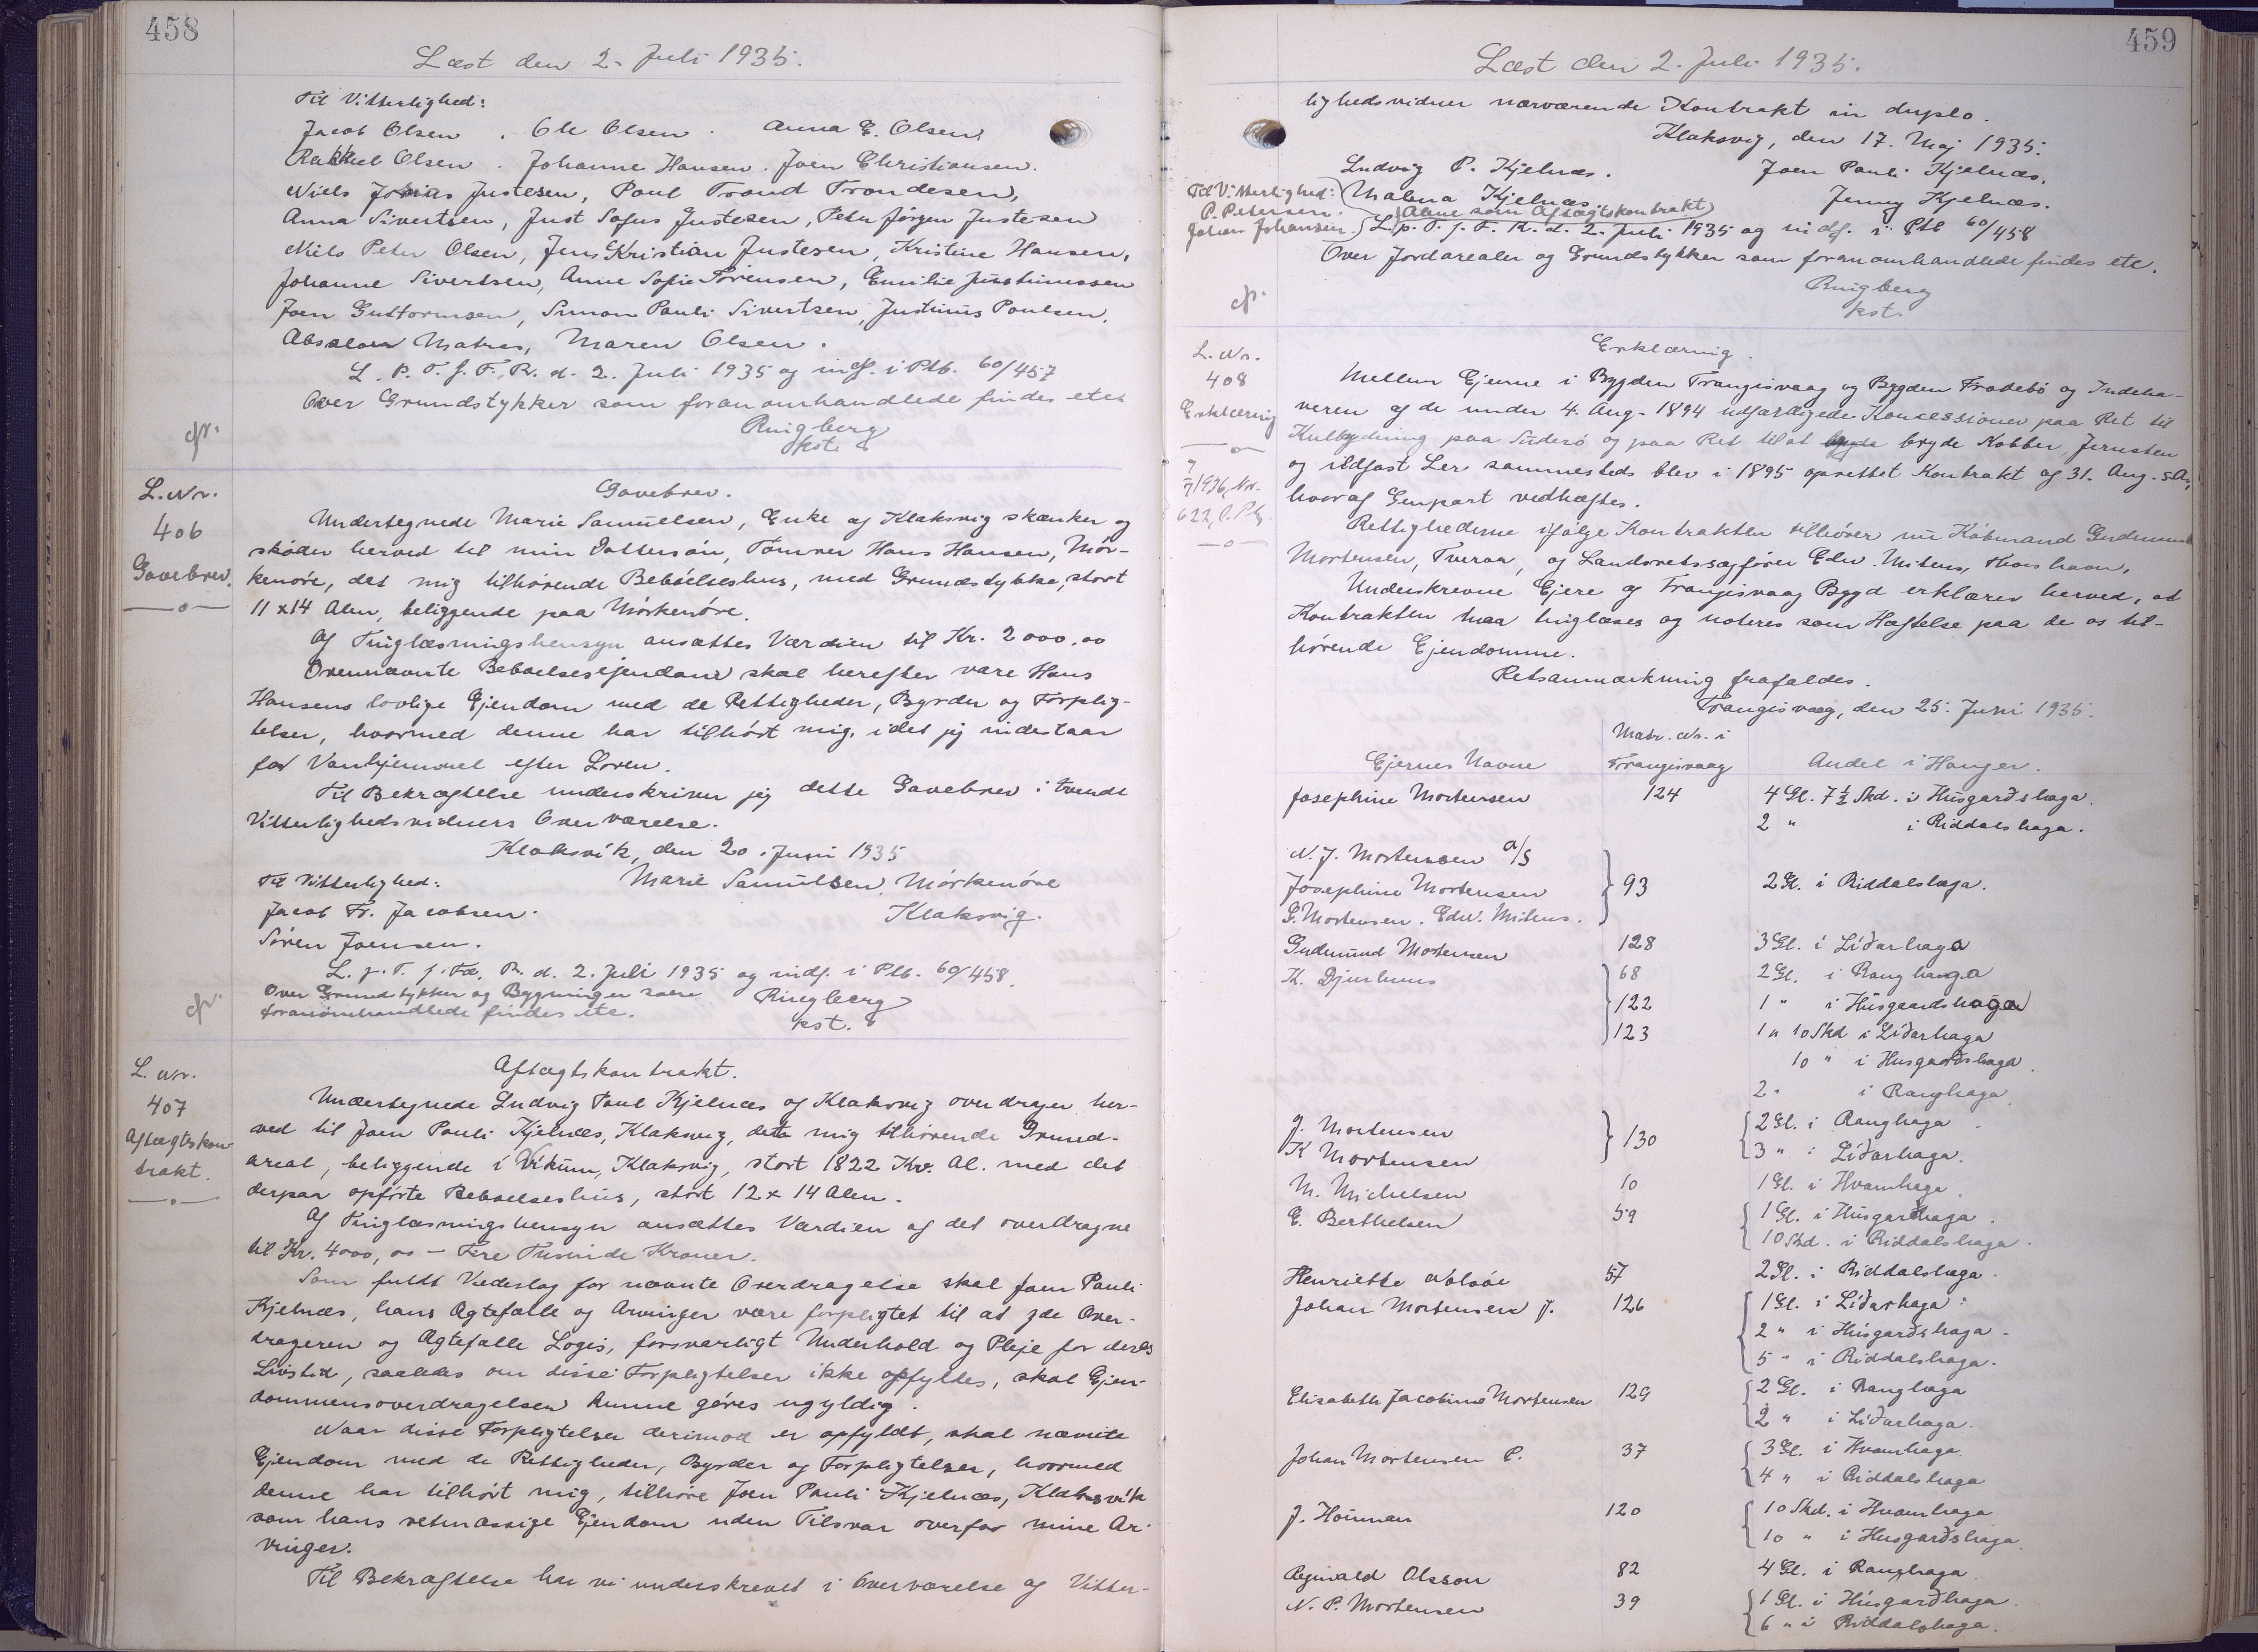 458
Læst den 2. Juli 1935.
Til Vitterlighed:
Jacob Olsen . Ole Olsen . Anna E. Olsen,
Rakkel Olsen . Johanne Hansen . Joen Christiansen.
Niels Justesen, Poul Trond Trondesen,
Anna Sivertsen, Just Sofus Justesen, Peter Jørgen Justesen
Niels Peter Olsen, Jens Kristian Justesen, Kristine Hansen,
Johanne Sivertsen, Anne Sofie Sørensen, Emilie Justinussen
Joen Guttormsen, Simon Pauli Sivertsen, Justinus Poulsen,
Absalon Matras, Maren Olsen.
L. p. T. f. F. R. d. 2. Juli 1935 og indf. i Ptb. 60/457
Over Grundstykker som foranomhandlede findes etc
Ringberg
kst.
L. Nr.
406
Gavebrev.
Gavebrev.
Undertegnede Marie Samuelsen, Enke af Klaksvig skænker og
skøder herved til min Dattersøn, Tømrer Hans Hansen, Mør-
kenøre, det mig tilhørende Beboelseshus, med Grundstykke, stort
11 x 14 Alen, beliggende paa Mørkenøre.
Af Tinglæsningshensyn ansættes Værdien til Kr. 2000.00
Ovennævnte Beboelsesejendom skal herefter være Hans
Hansens lovlige Ejendom med de Rettigheder, Byrder og Forplig-
telser, hvormed denne har tilhørt mig, idet jeg indestaar
for Vanhjemmel efter Loven.
Til Bekræftelse underskriver jeg dette Gavebrev i tvende
Vitterlighedsvidners Overværelse.
Klaksvík, den 20. Juni 1935
Til Vitterlighed: Marie Samuelsen, Mørkenøre
Jacob Fr. Jacobsen. Klaksvig.
Søren Joensen.
L. p. T. f. Fær. R. d. 2. Juli 1935 og indf. i Ptb. 60/458.
Over Grundstykker og Bygninger som Ringberg
foranomhandlede findes etc. kst.
L. Nr.
407
Aftægtskon
trakt.
Aftægtskontrakt.
Undertegnede Ludvig Poul Kjelnæs af Klaksvig overdrager her-
ved til Joen Pauli Kjelnæs, Klaksvig, dette mig tilhørende Grund-
areal, beliggende í Víkum, Klaksvig, stort 1822 Kv. Al. med det
derpaa opførte Beboelseshus, stort 12 x 14 Alen.
Af Tinglæsningshensyn ansættes Værdien af det overdragne
til Kr. 4000,00 – Fire Tusinde Kroner.
Som fuldt Vederlag for nævnte Overdragelse skal Joen Pauli
Kjelnæs, hans Ægtefælle og Arvinger være forpligtet til at yde Over-
drageren og Ægtefælle Logis, forsvarligt Underhold og Pleje for deres
Livstid, saaledes om disse Forpligtelser ikke opfyldes, skal Ejen-
dommensoverdragelsen kunne gøres ugyldig.
Naar disse Forpligtelser derimod er opfyldt, skal nævnte
Ejendom med de Rettigheder, Byrder og Forpligtelser, hvormed
denne har tilhørt mig, tilhøre Joen Pauli Kjelnæs, Klaksvík
som hans retmæssige Ejendom uden Tilsvar overfor mine Ar-
vinger.
Til Bekræftelse har vi underskrevet i Overværelse af Vitter-
459
Læst den 2. Juli 1935.
lighedsvidner nærværende Kontrakt in duplo.
Klaksvig, den 17. Maj 1935.
Ludvig P. Kjelnæs. Joen Pauli Kjelnæs,
Til Vitterlighed: Malena Kjelnæs. Jenny Kjelnæs.
P. Petersen. (Alene som Aftægtskontrakt)
Johan Johansen. L. p. T. f. F. R. d. 2. Juli 1935 og indf. i Ptb 60/458
Over Jordarealer og Grundstykker som foranomhandlede findes etc.
Ringberg
kst.
L. Nr.
408
Erklæring
7/7 1936, Nr.
622,
Erklæring.
Mellem Ejerne i Bygden Trangisvaag og Bygden Frodebø og Indeha-
veren af de under 4. Aug. 1894 udfærdigede Koncessioner paa Ret til
Kulbrydning paa Suderø og paa Ret til at bryde Kobber, Jernsten
og ildfast Ler sammesteds blev i 1895 oprettet Kontrakt af 31. Aug. s.A.,
hvoraf Genpart vedhæftes.
Rettighederne ifølge Kontrakten tilhører nu Købmand Gudmund
Mortensen, Tveraa, og Landsretssagfører Edw. Mitens, Thorshavn,
Underskrevne Ejere af Trangisvaag Bygd erklærer herved, at
Kontrakten maa tinglæses og noteres som Hæftelse paa de os til-
hørende Ejendomme.
Retsanmærkning frafaldes.
Trangisvaag, den 25. Juni 1935.
Matr. Nr. i
Ejernes Navne Trangisvaag Andel i Hauger.
Josephine Mortensen 124 4 Gl. 7½ Skd. i Húsgarðshaga.
2 " i Riddalshaga.
N. J. Mortensen A/S
Josephine Mortensen 93 2 Gl. i Riddalshaga.
G. Mortensen. Edw. Mitens.
Gudmund Mortensen 128 3 Gl. i Líðarhaga
K. Djurhuus 68 2 Gl. i Ranghaga
122 1 " i Húsgaardshaga
123 1 " 10 Skd i Líðarhaga
10 " i Husgarðshaga.
2 " i Ranghaga.
J. Mortensen 130 2 Gl. i Ranghaga.
K Mortensen 3 " i Líðarhaga.
M. Michelsen 10 1 Gl. i Hvamhaga.
E. Berthelsen 59 1 Gl. i Húsgarðhaga.
10 Skd. i Riddalshaga.
Henriette Nolsöe 57 2 Gl. i Riddalshaga.
Johan Mortensen J. 126 1 Gl. i Líðarhaga.
2 " i Húsgarðshaga.
5 " i Riddalshaga.
Elisabeth Jacobine Mortensen 129 2 Gl. i Ranghaga
2 " i Líðarhaga.
Johan Mortensen P. 37 3 Gl. i Hvamhaga
4 " i Riddalshaga
J. 120 10 Skd. i Hvamhaga
10 " i Husgarðshaga.
Reginald Olsson 82 4 Gl. i Ranghaga.
N. P. Mortensen 39 1 Gl. i Húsgarðhaga.
6 " i Riddalshaga.